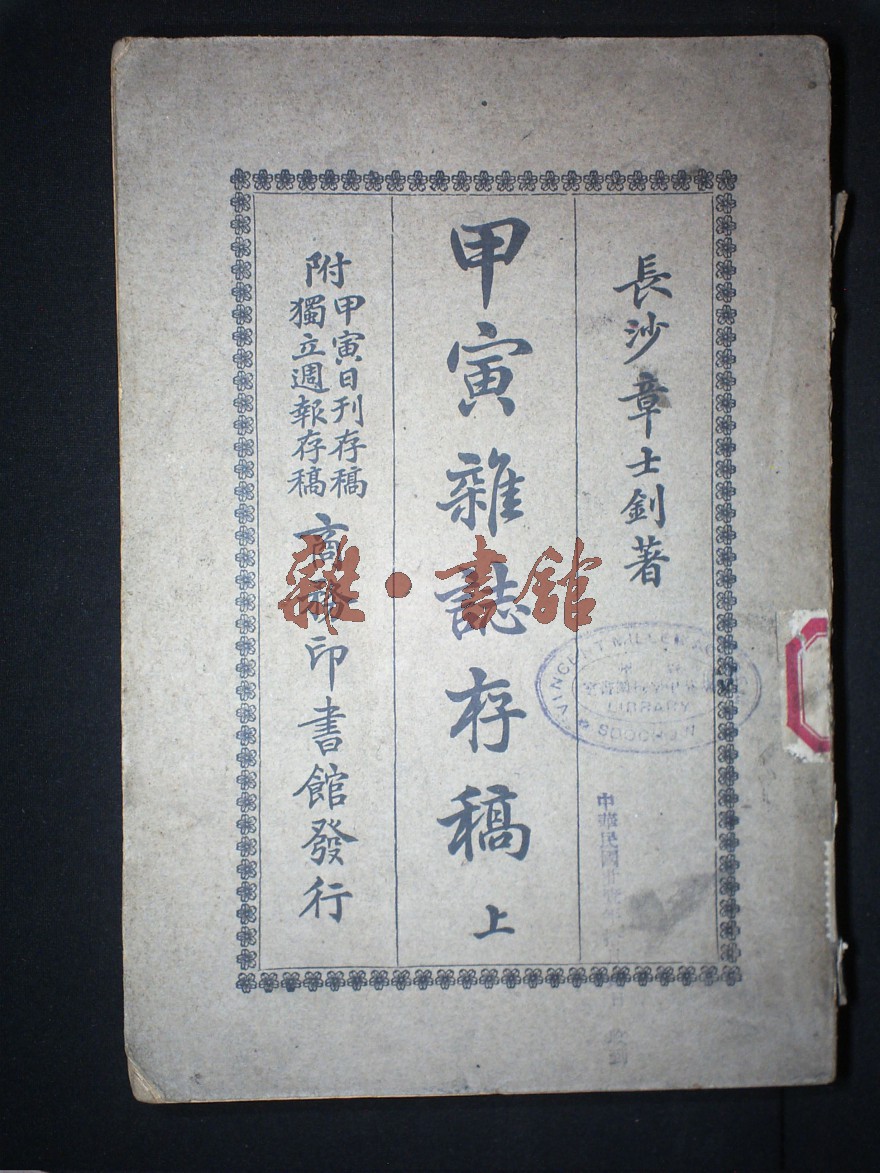 長沙章士釗著
甲寅雜誌存稿 上
附
甲寅日刊存稿
獨立週報存稿
商務印書館發行
雜·書館
VINCENT MILLER
LIBRARY
SOOCHOW
中華民國